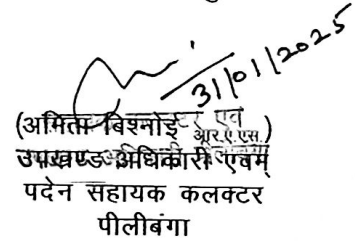 31/01/2025
(अमिता बिश्नोई आर.ए.एस.)
उपखण्ड अधिकारी एवम्
पदेन सहायक कलक्टर
पीलीबंगा